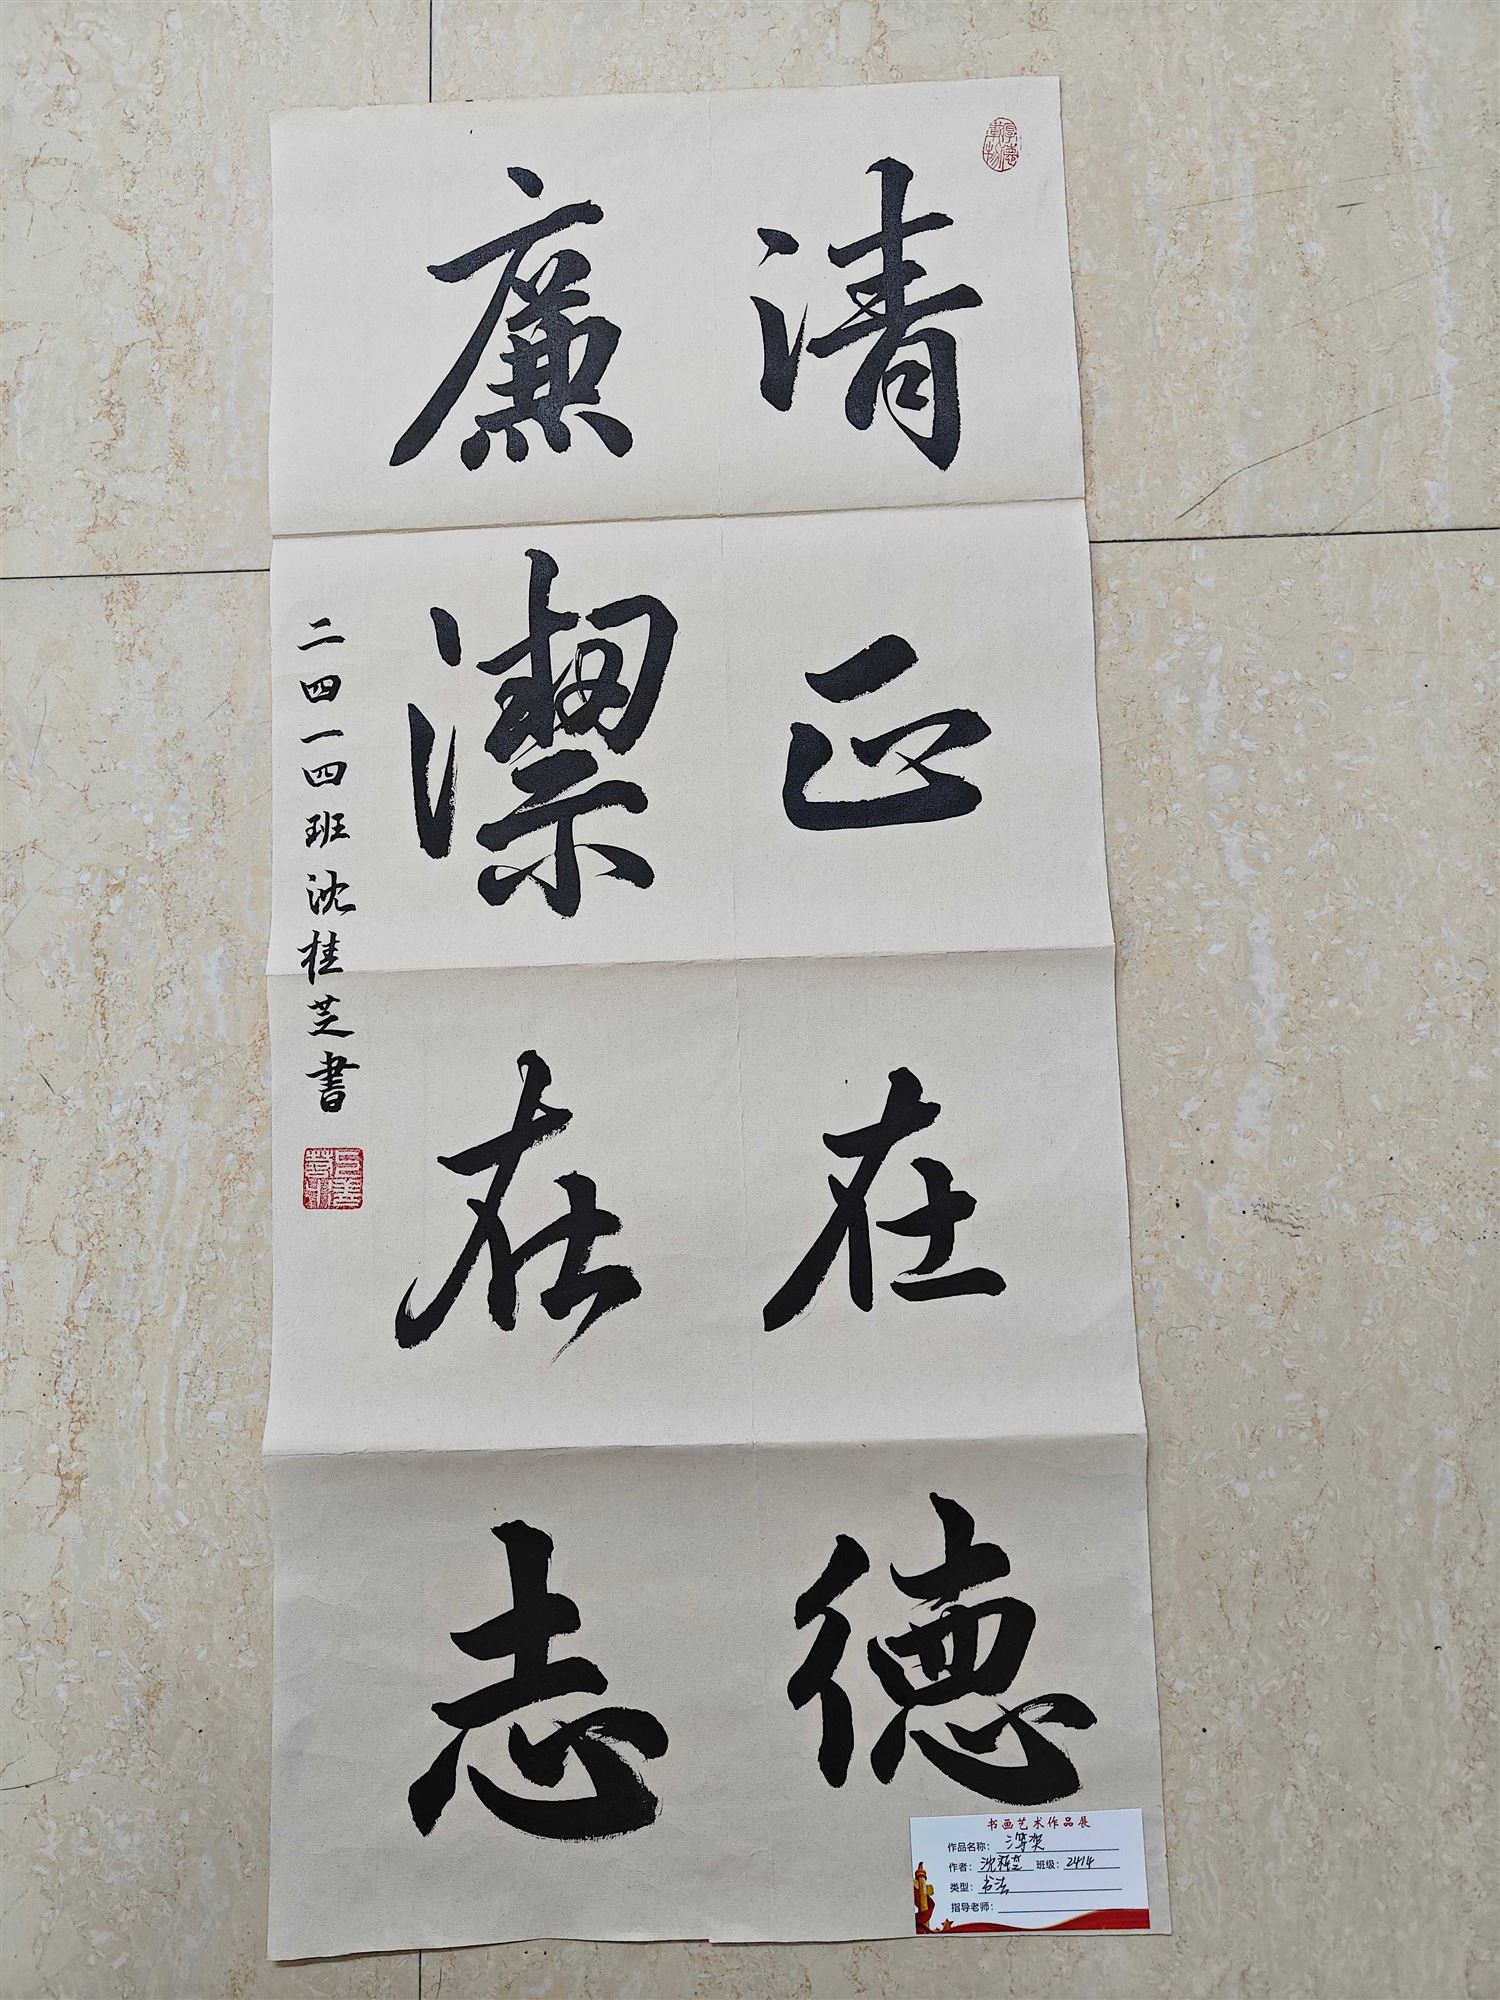 清正在德
廉潔在志
二四一四班沈桂芝書
厚德載物
书画艺术作品展
作品名称：
作者：沈桂芝 班级：2414
类型：书法
指导老师：